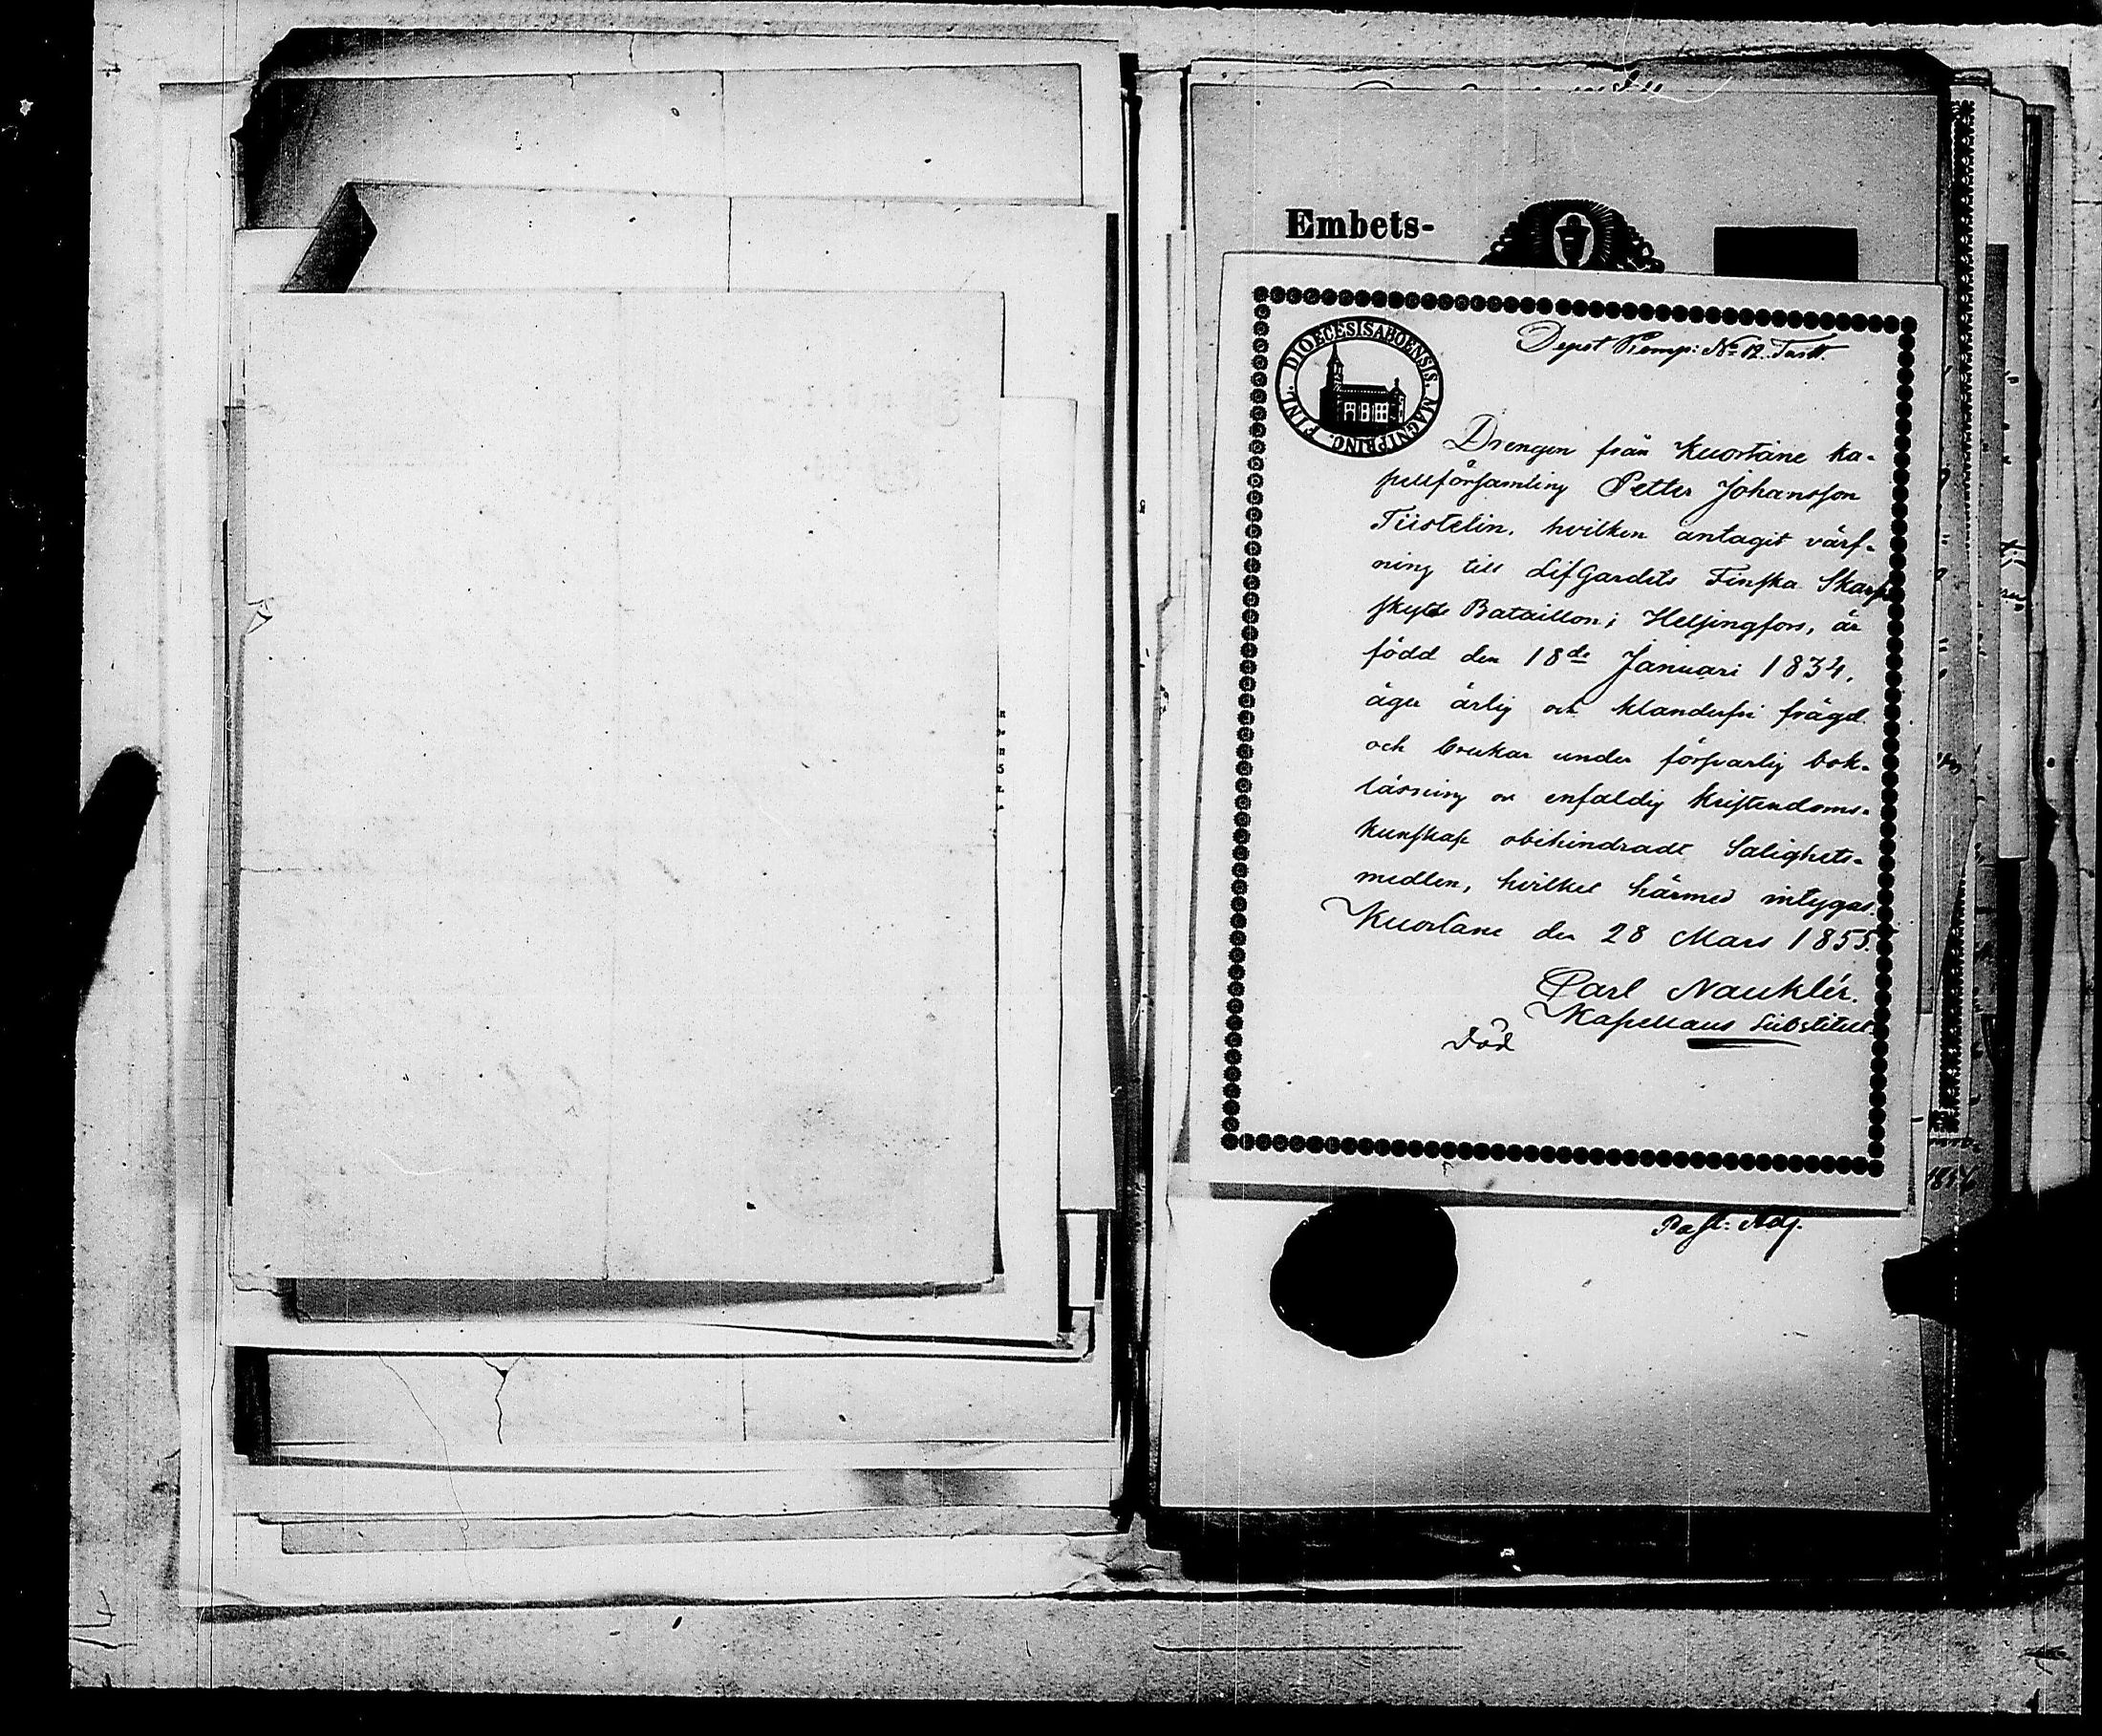 Embets-
DIOECESIS ABOENSIS. MAGNI PRINC. FINL.
Depot Komp: No 12.
Drengen från Kuortane ka-
pellförsamling Petter Johansson
Tiistelin, hvilken antagit värf-
ning till Lif Gardets Finska Skarp
skytte Bataillon i Helsingfors, är
född den 18de Januari 1834,
äger ärlig och klanderfri frägd
och brukar under försvarlig bok-
läsning och enfaldig kristendoms-
kunskap obehindradt Salighets-
medlen, hvilket härmed intygas.
Kuortane den 28 Mars 1855.
Carl Nauklér.
Kapellans Substitut
Död
Past: Adj.